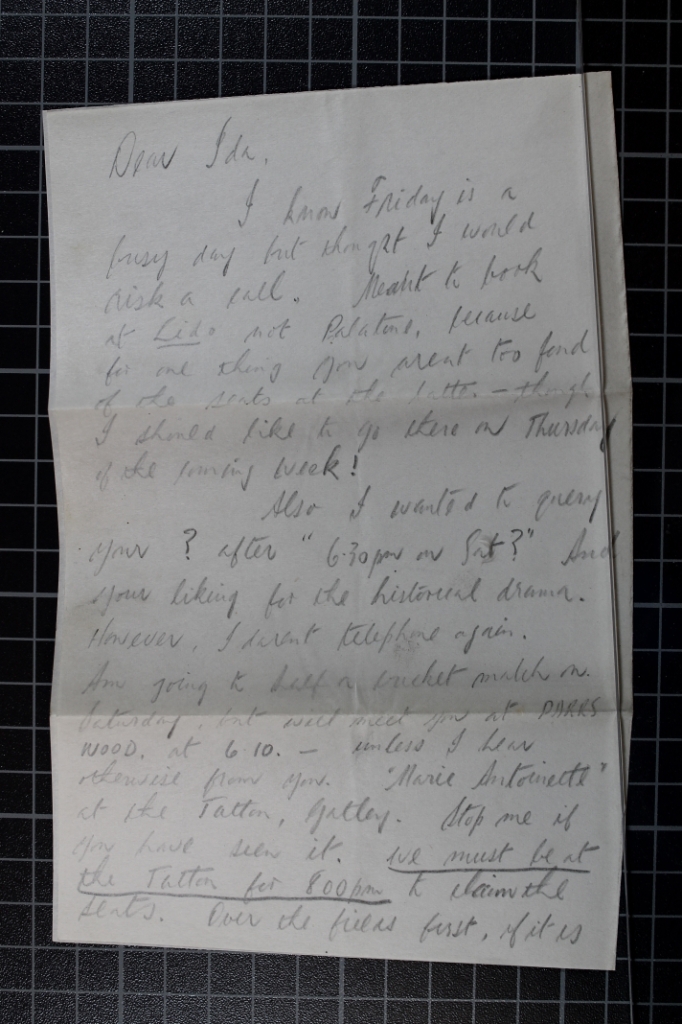 Dear Ida,
I know Friday is a
busy day but thought I would
risk a call. Meant to book
at Lido not Palatine, because
for one thing you arent too fond
of the seats at the latter - though
I should like to go there on Thursday
of the coming week!
Also I wanted to query
your ? after "6.30pm on Sat?" And
your liking for the historical drama.
However, I darent telephone again.
Am going to half a cricket match on
Saturday, but will meet you at PARRS
WOOD. at 6.10. - unless I hear
otherwise from you. "Marie Antoinette"
at the Tatton, Gatley. Stop me if
you have seen it. we must be at
the Tatton for 8.00pm to claim the
seats. Over the fields first, if it is